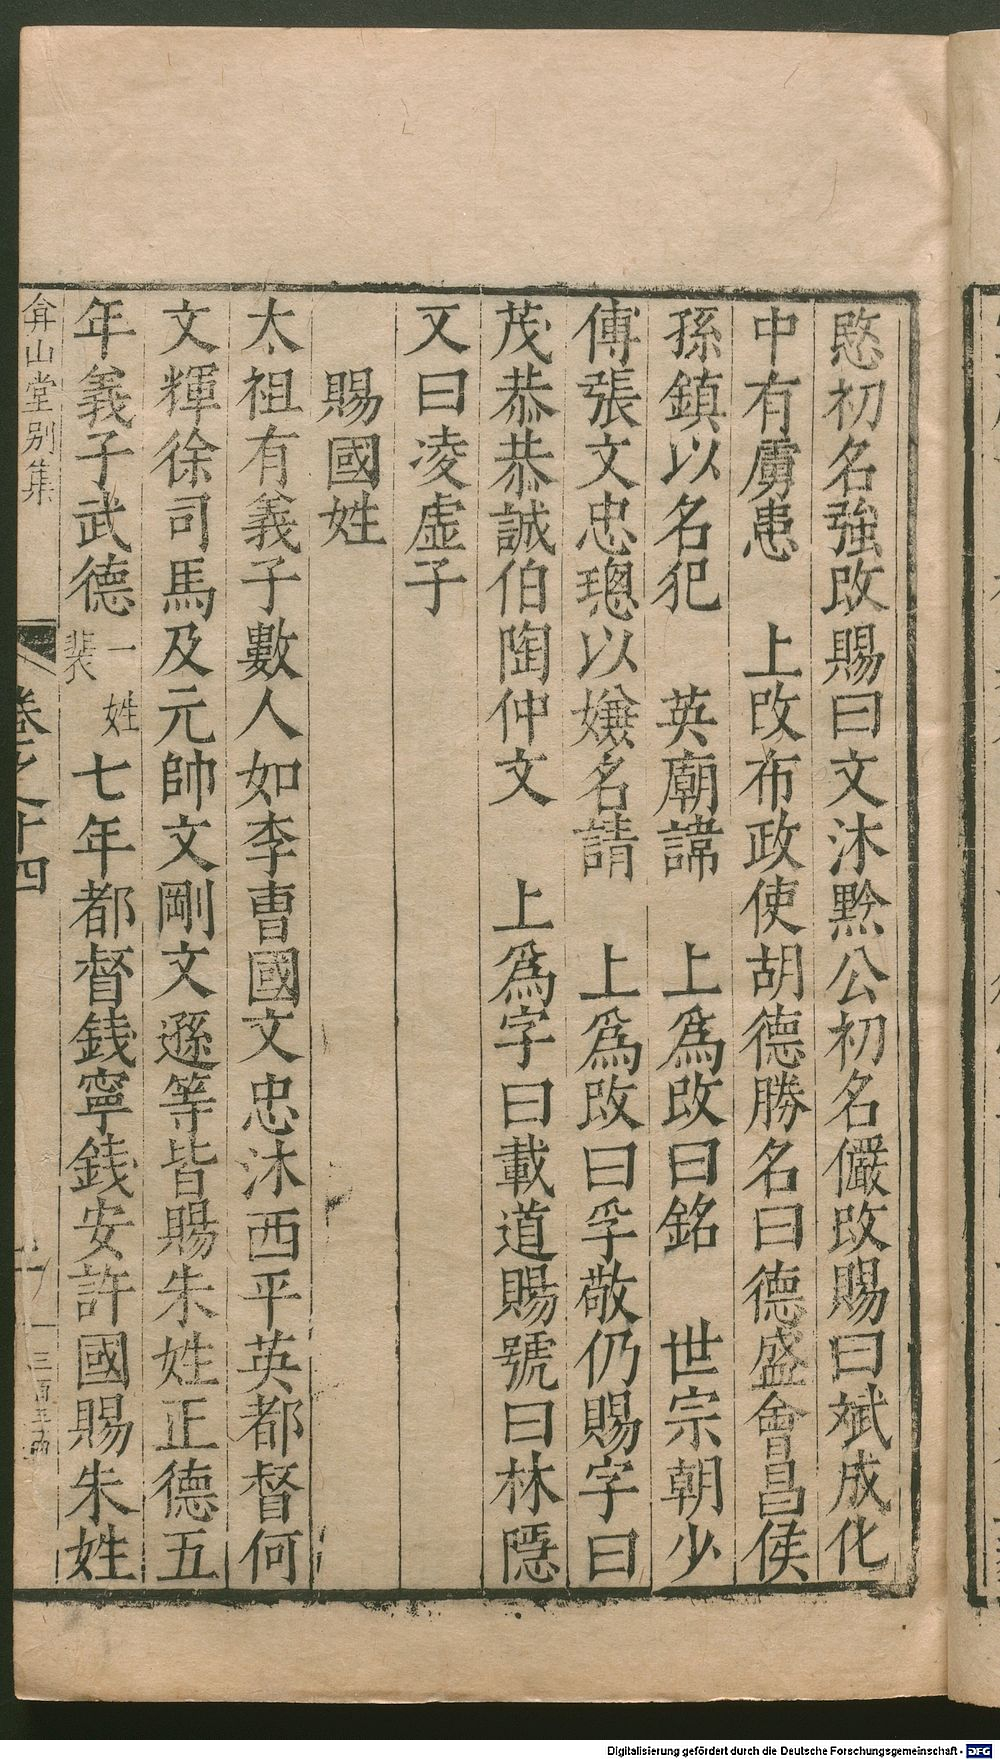 愍初名強改賜曰文沐黔公初名儼改賜曰斌成化
中有虜患 上改布政使胡德勝名曰德盛會昌侯
孫鎮以名犯 英廟諱 上為改曰銘 世宗朝少
傅張文忠璁以嫌名請 上為改曰孚敬仍賜字曰
茂恭恭誠伯陶仲文 上為字曰載道賜號曰林隱
又曰凌虛子
賜國姓
太祖有義子數人如李曹國文忠沐西平英都督何
文輝徐司馬及元帥文剛文遜等皆賜朱姓正德五
年義子武德一姓裴七年都督錢寧錢安許國賜朱姓
弇山堂别集 卷之十四
Digitalisierung gefördert durch die Deutsche Forschungsgemeinschaft - DFG